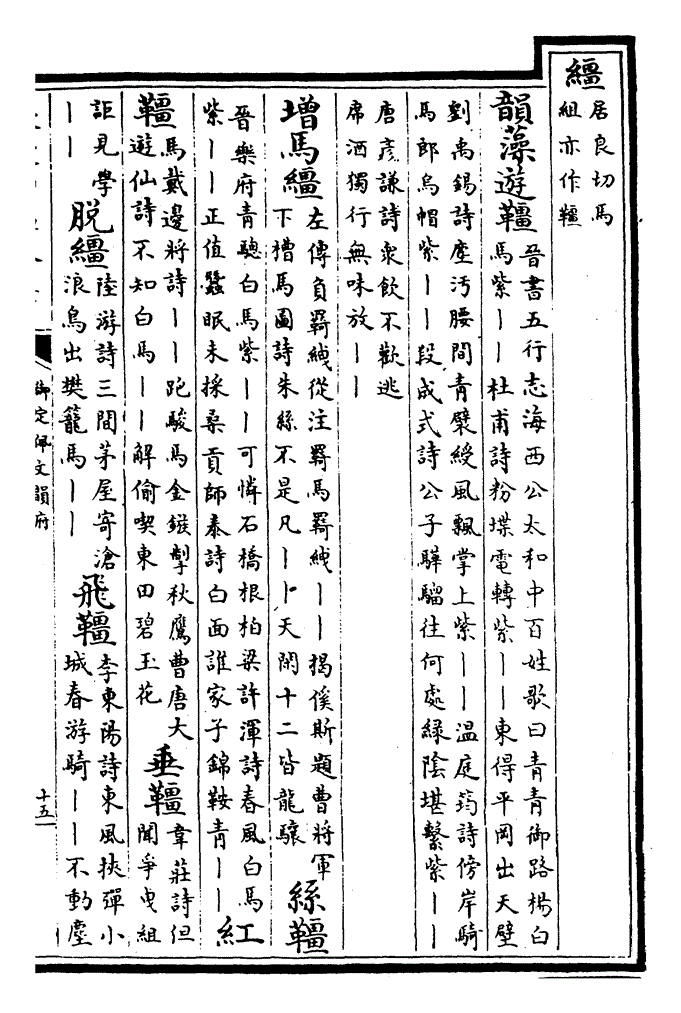 繮居良切馬
組亦作韁
韻藻遊韁晉書五行志海西公太和中百姓歌曰青青御路楊白
馬紫丨丨杜甫詩粉堞電轉紫丨丨東得平岡出天壁
劉禹錫詩塵汚腰間青襞綬風飄掌上紫丨丨温庭筠詩傍岸騎
馬郎烏帽紫丨丨段成式詩公子驊騮往何處緑陰堪繫紫丨丨
唐彦謙詩衆飲不歡逃
席酒獨行無味放丨丨
增馬繮左傳負羇絏從注羇馬羇絏丨丨揭傒斯題曹將軍
下槽馬圖詩朱絲不是凡丨卜天閑十二皆龍驤
絲韁
晉樂府青驄白馬紫丨丨可憐石橋根柏梁許渾詩春風白馬
紫丨丨正值蠶眠未採桑貢師泰詩白面誰家子錦鞍青丨丨
紅
韁馬戴邊將詩丨丨跑駿馬金鏃掣秋鷹曹唐大
遊仙詩不知白馬丨丨解偷喫東田碧玉花
垂韁韋莊詩但
聞爭曳組
詎見學
丨丨
脱繮陸游詩三間茅屋寄滄
浪鳥出樊籠馬丨丨
飛韁李東陽詩東風挾彈小
城春游騎丨丨不動塵
御定佩文韻府
十五